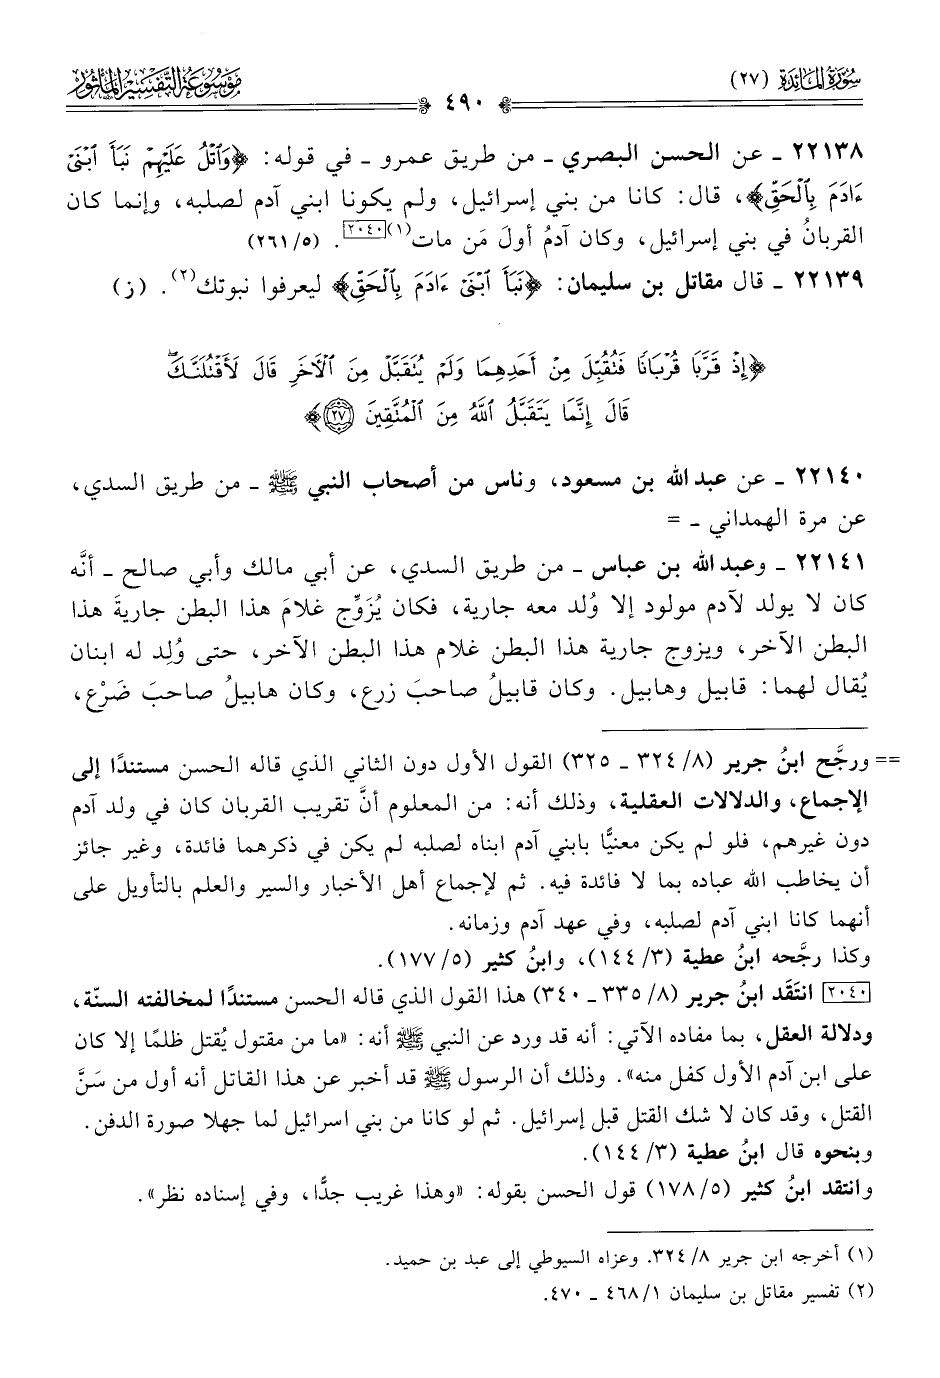 سُورَةُ المَائِدَة (٢٧)
مَوْسُوعَة التَّفْسِير المَأثُور
٤٩٠
٢٢١٣٨ ـ عن الحسن البصري ـ من طريق عمرو ـ في قوله: ﴿وَٱتْلُ عَلَيْهِمْ نَبَأَ ٱبْنَىْ
ءَادَمَ بِٱلْحَقِّ﴾، قال: كانا من بني إسرائيل، ولم يكونا ابني آدم لصلبه، وإنما كان
القربانُ في بني إسرائيل، وكان آدمُ أولَ مَن مات(١)[٢٠٤٠]. (٢٦١/٥)
٢٢١٣٩ ـ قال مقاتل بن سليمان: ﴿نَبَأَ ٱبْنَىْ ءَادَمَ بِٱلْحَقِّ﴾ ليعرفوا نبوتك(٢). (ز)
﴿إِذْ قَرَّبَا قُرْبَانًا فَتُقُبِّلَ مِنْ أَحَدِهِمَا وَلَمْ يُتَقَبَّلْ مِنَ ٱلْأَخَرِ قَالَ لَأَقْتُلَنَّكَۖ
قَالَ إِنَّمَا يَتَقَبَّلُ ٱللَّهُ مِنَ ٱلْمُتَّقِينَ ۝٢٧﴾
٢٢١٤٠ ـ عن عبد الله بن مسعود، وناس من أصحاب النبي ﷺ ـ من طريق السدي،
عن مرة الهمداني ـ =
٢٢١٤١ ـ وعبد الله بن عباس ـ من طريق السدي، عن أبي مالك وأبي صالح ـ أنَّه
كان لا يولد لآدم مولود إلا وُلد معه جارية، فكان يُزَوِّج غلامَ هذا البطن جاريةَ هذا
البطن الآخر، ويزوج جارية هذا البطن غلام هذا البطن الآخر، حتى وُلِد له ابنان
يُقال لهما: قابيل وهابيل. وكان قابيلُ صاحبَ زرع، وكان هابيلُ صاحبَ ضَرْع،
== ورجَّح ابنُ جرير (٨/ ٣٢٤ ـ ٣٢٥) القول الأول دون الثاني الذي قاله الحسن مستندًا إلى
الإجماع، والدلالات العقلية، وذلك أنه: من المعلوم أنَّ تقريب القربان كان في ولد آدم
دون غيرهم، فلو لم يكن معنيًّا بابني آدم ابناه لصلبه لم يكن في ذكرهما فائدة، وغير جائز
أن يخاطب الله عباده بما لا فائدة فيه. ثم لإجماع أهل الأخبار والسير والعلم بالتأويل على
أنهما كانا ابني آدم لصلبه، وفي عهد آدم وزمانه.
وكذا رجَّحه ابنُ عطية (٣/ ١٤٤)، وابنُ كثير (٥/ ١٧٧).
[٢٠٤٠] انتَقَد ابنُ جرير (٨/ ٣٣٥ ـ ٣٤٠) هذا القول الذي قاله الحسن مستندًا لمخالفته السنّة،
ودلالة العقل، بما مفاده الآتي: أنه قد ورد عن النبي ﷺ أنه: «ما من مقتول يُقتل ظلمًا إلا كان
على ابن آدم الأول كفل منه». وذلك أن الرسول ﷺ قد أخبر عن هذا القاتل أنه أول من سَنَّ
القتل، وقد كان لا شك القتل قبل إسرائيل. ثم لو كانا من بني اسرائيل لما جهلا صورة الدفن.
وبنحوه قال ابنُ عطية (٣/ ١٤٤).
وانتقد ابنُ كثير (٥/ ١٧٨) قول الحسن بقوله: «وهذا غريب جدًّا، وفي إسناده نظر».
(١) أخرجه ابن جرير ٨/ ٣٢٤. وعزاه السيوطي إلى عبد بن حميد.
(٢) تفسير مقاتل بن سليمان ١/ ٤٦٨ ـ ٤٧٠.